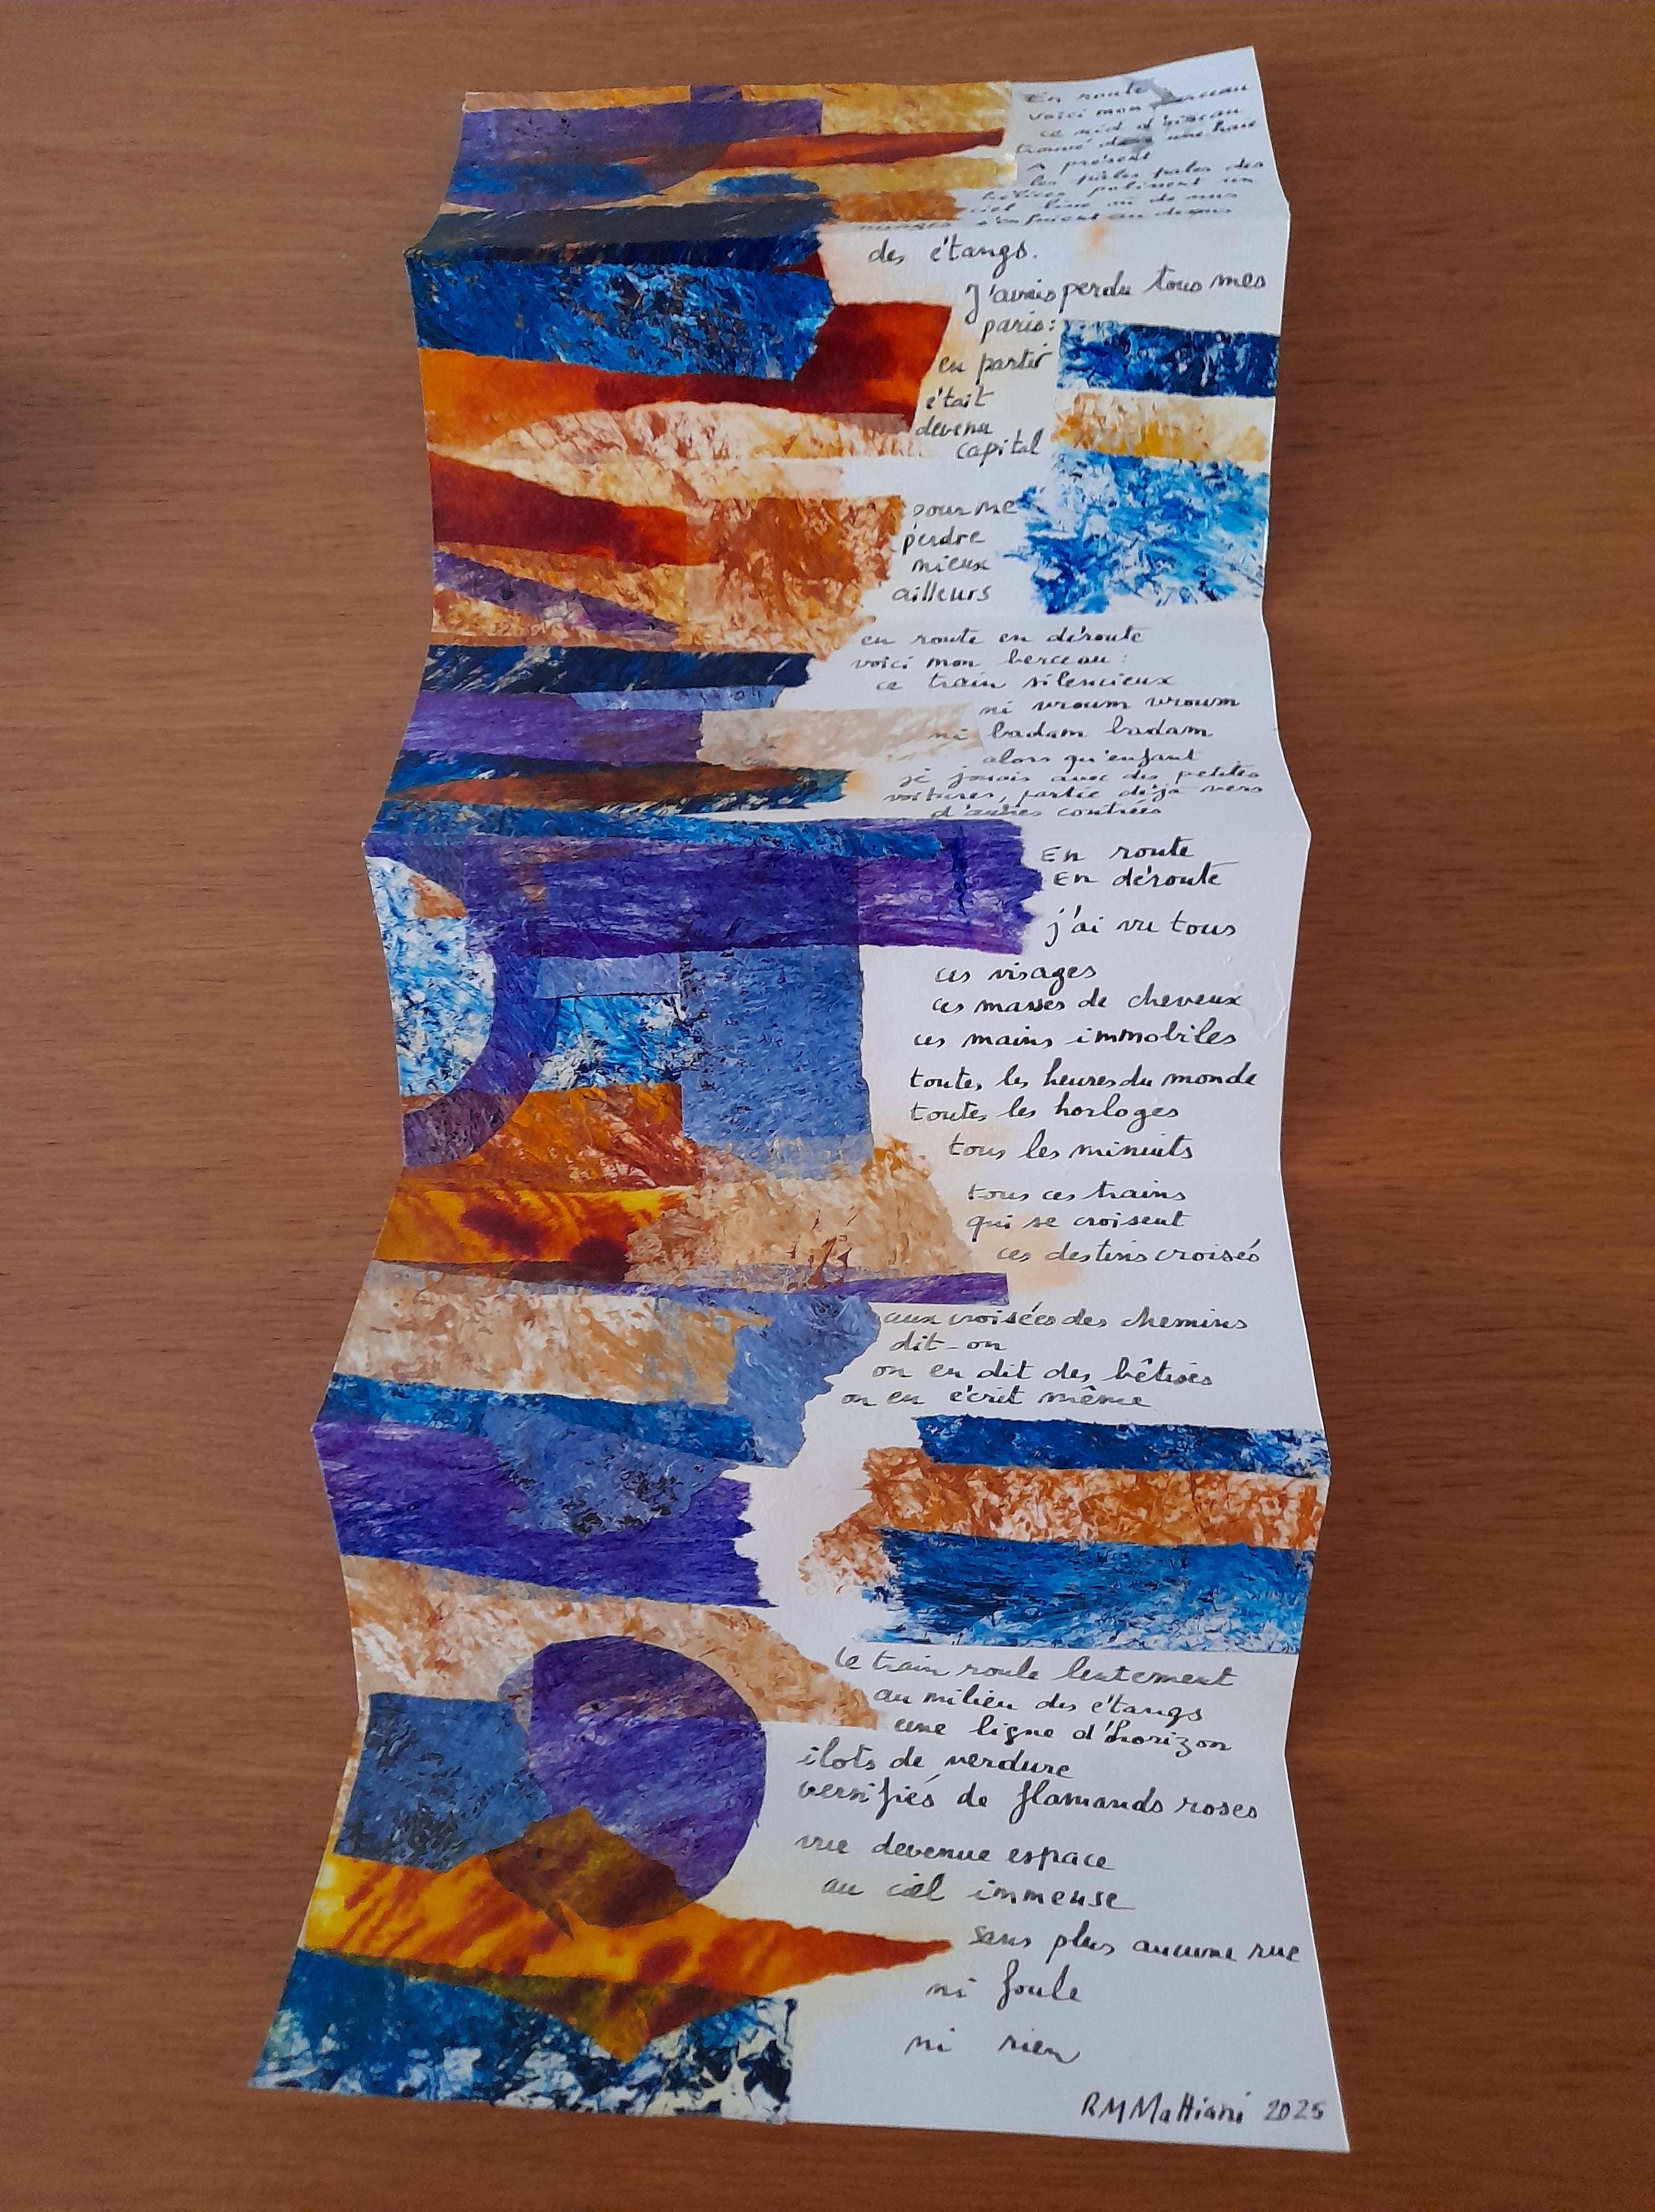 En route
voici mon berceau
ce nid d'oiseau
trouvé dans une haie
A présent
les pâles pales des
hélices polinent un
ciel bleu où de
nuages s'enfuient au dessus
des étangs.
J'avais perdu tous mes
paris:
en partir
était
devenu
capital
pour me
perdre
mieux
ailleurs
en route en déroute
voici mon berceau:
ce train silencieux
ni vroum vroum
ni badam badam
alors qu'enfant
je jouais avec des petites
voitures, partie déjà vers
d'autres contrées
En route
En déroute
j'ai vu tous
ces visages
ces masses de cheveux
ces mains immobiles
toutes les heures du monde
toutes les horloges
tous les minuits
tous ces trains
qui se croisent
ces destins croisés
aux croisées des chemins
dit-on
on en dit des bêtises
on en écrit même
Le train roule lentement
au milieu des étangs
une ligne d'horizon
ilots de verdure
versifiés de flamands roses
vue devenue espace
au ciel immense
sans plus aucune rue
ni foule
ni rien
RMMattiani 2025